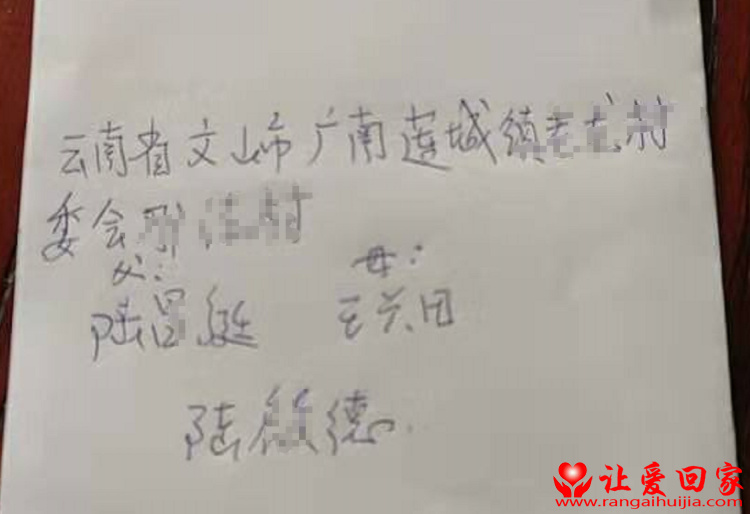 云南省文山市广南莲城镇村
委会村
父： 母：
陆 王关田
陆德
让爱回家
www.rangaihuijia.com